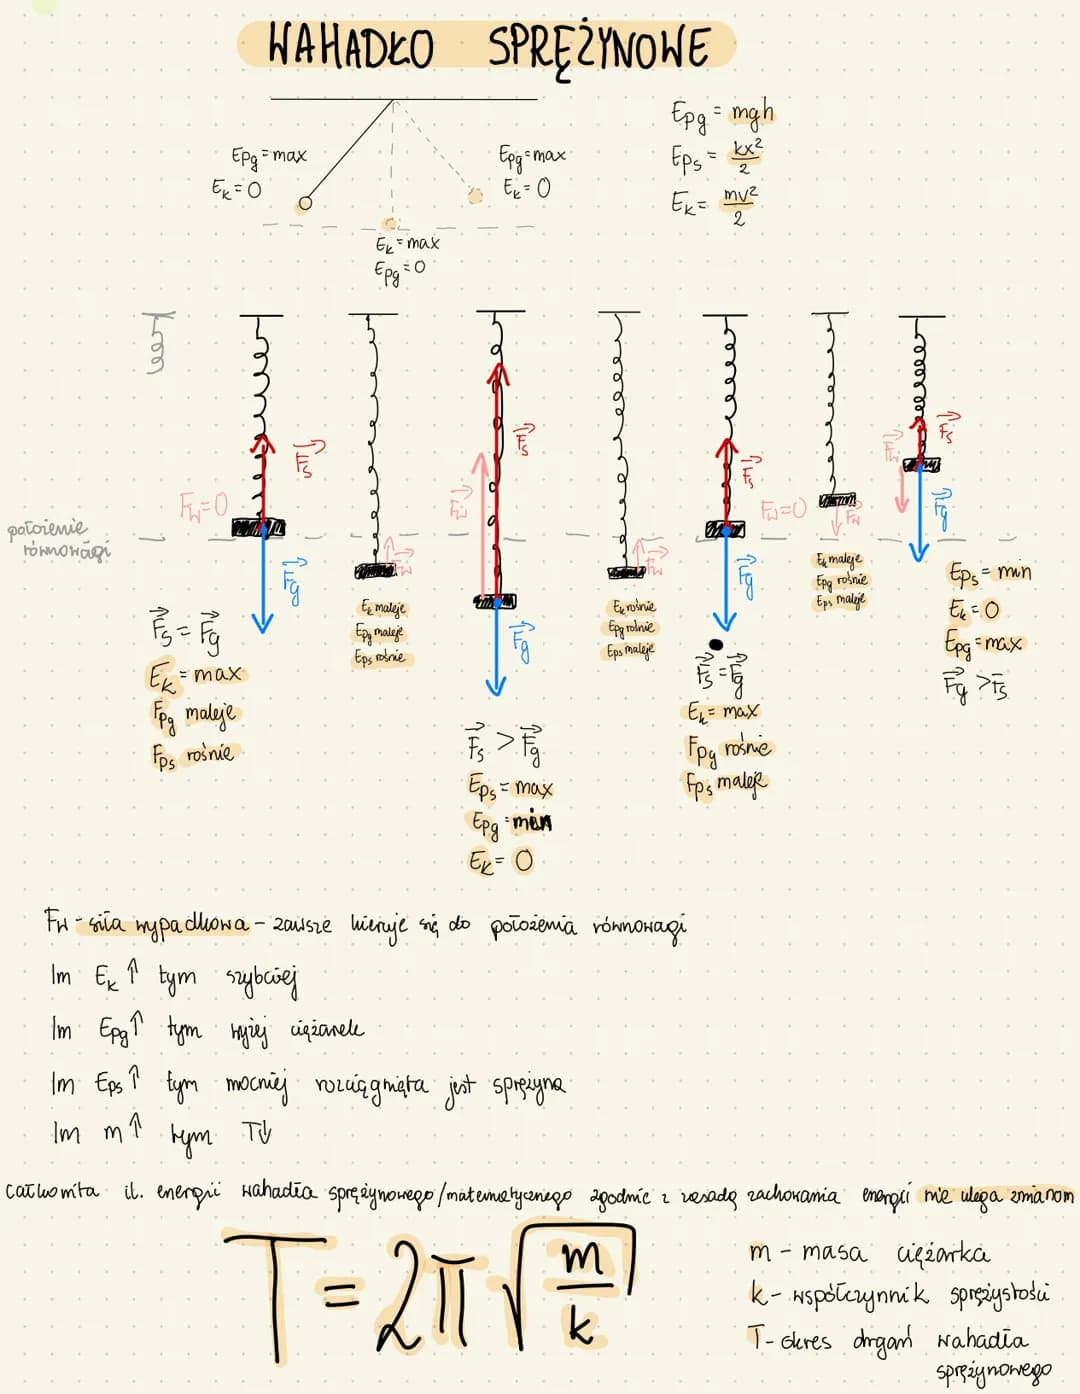 WAHADŁO SPRĘŻYNOWE
Epg = max
Ek = 0
Epg = max
Ek = 0
Ek = max
Epg = 0
Epg = mgh
Eps = kx²/2
Ek = mv²/2
położenie
równowagi
Fw = 0
Fs
Fg
Fs = Fg
Ek = max
Epg maleje
Eps rośnie
Fw
Ek maleje
Epg maleje
Eps rośnie
Fw
Fs
Fg
Fs > Fg
Eps = max
Epg = min
Ek = 0
Fw
Ek rośnie
Epg rośnie
Eps maleje
Fs
Fw = 0
Fg
Fs = Fg
Ek = max
Fpg rośnie
Fps maleje
Fw
Ek maleje
Epg rośnie
Eps maleje
Fw
Fs
Fg
Eps = min
Ek = 0
Epg = max
Fg > Fs
Fw - siła wypadkowa - zawsze kieruje się do położenia równowagi
Im Ek ↑ tym szybciej
Im Epg ↑ tym wyżej ciężarek
Im Eps ↑ tym mocniej rozciągnięta jest sprężyna
Im m ↑ tym T↓
całkowita il. energii wahadła sprężynowego/matematycznego zgodnie z zasadą zachowania energii nie ulega zmianom
T = 2π √m/k
m - masa ciężarka
k - współczynnik sprężystości
T - okres drgań wahadła
sprężynowego